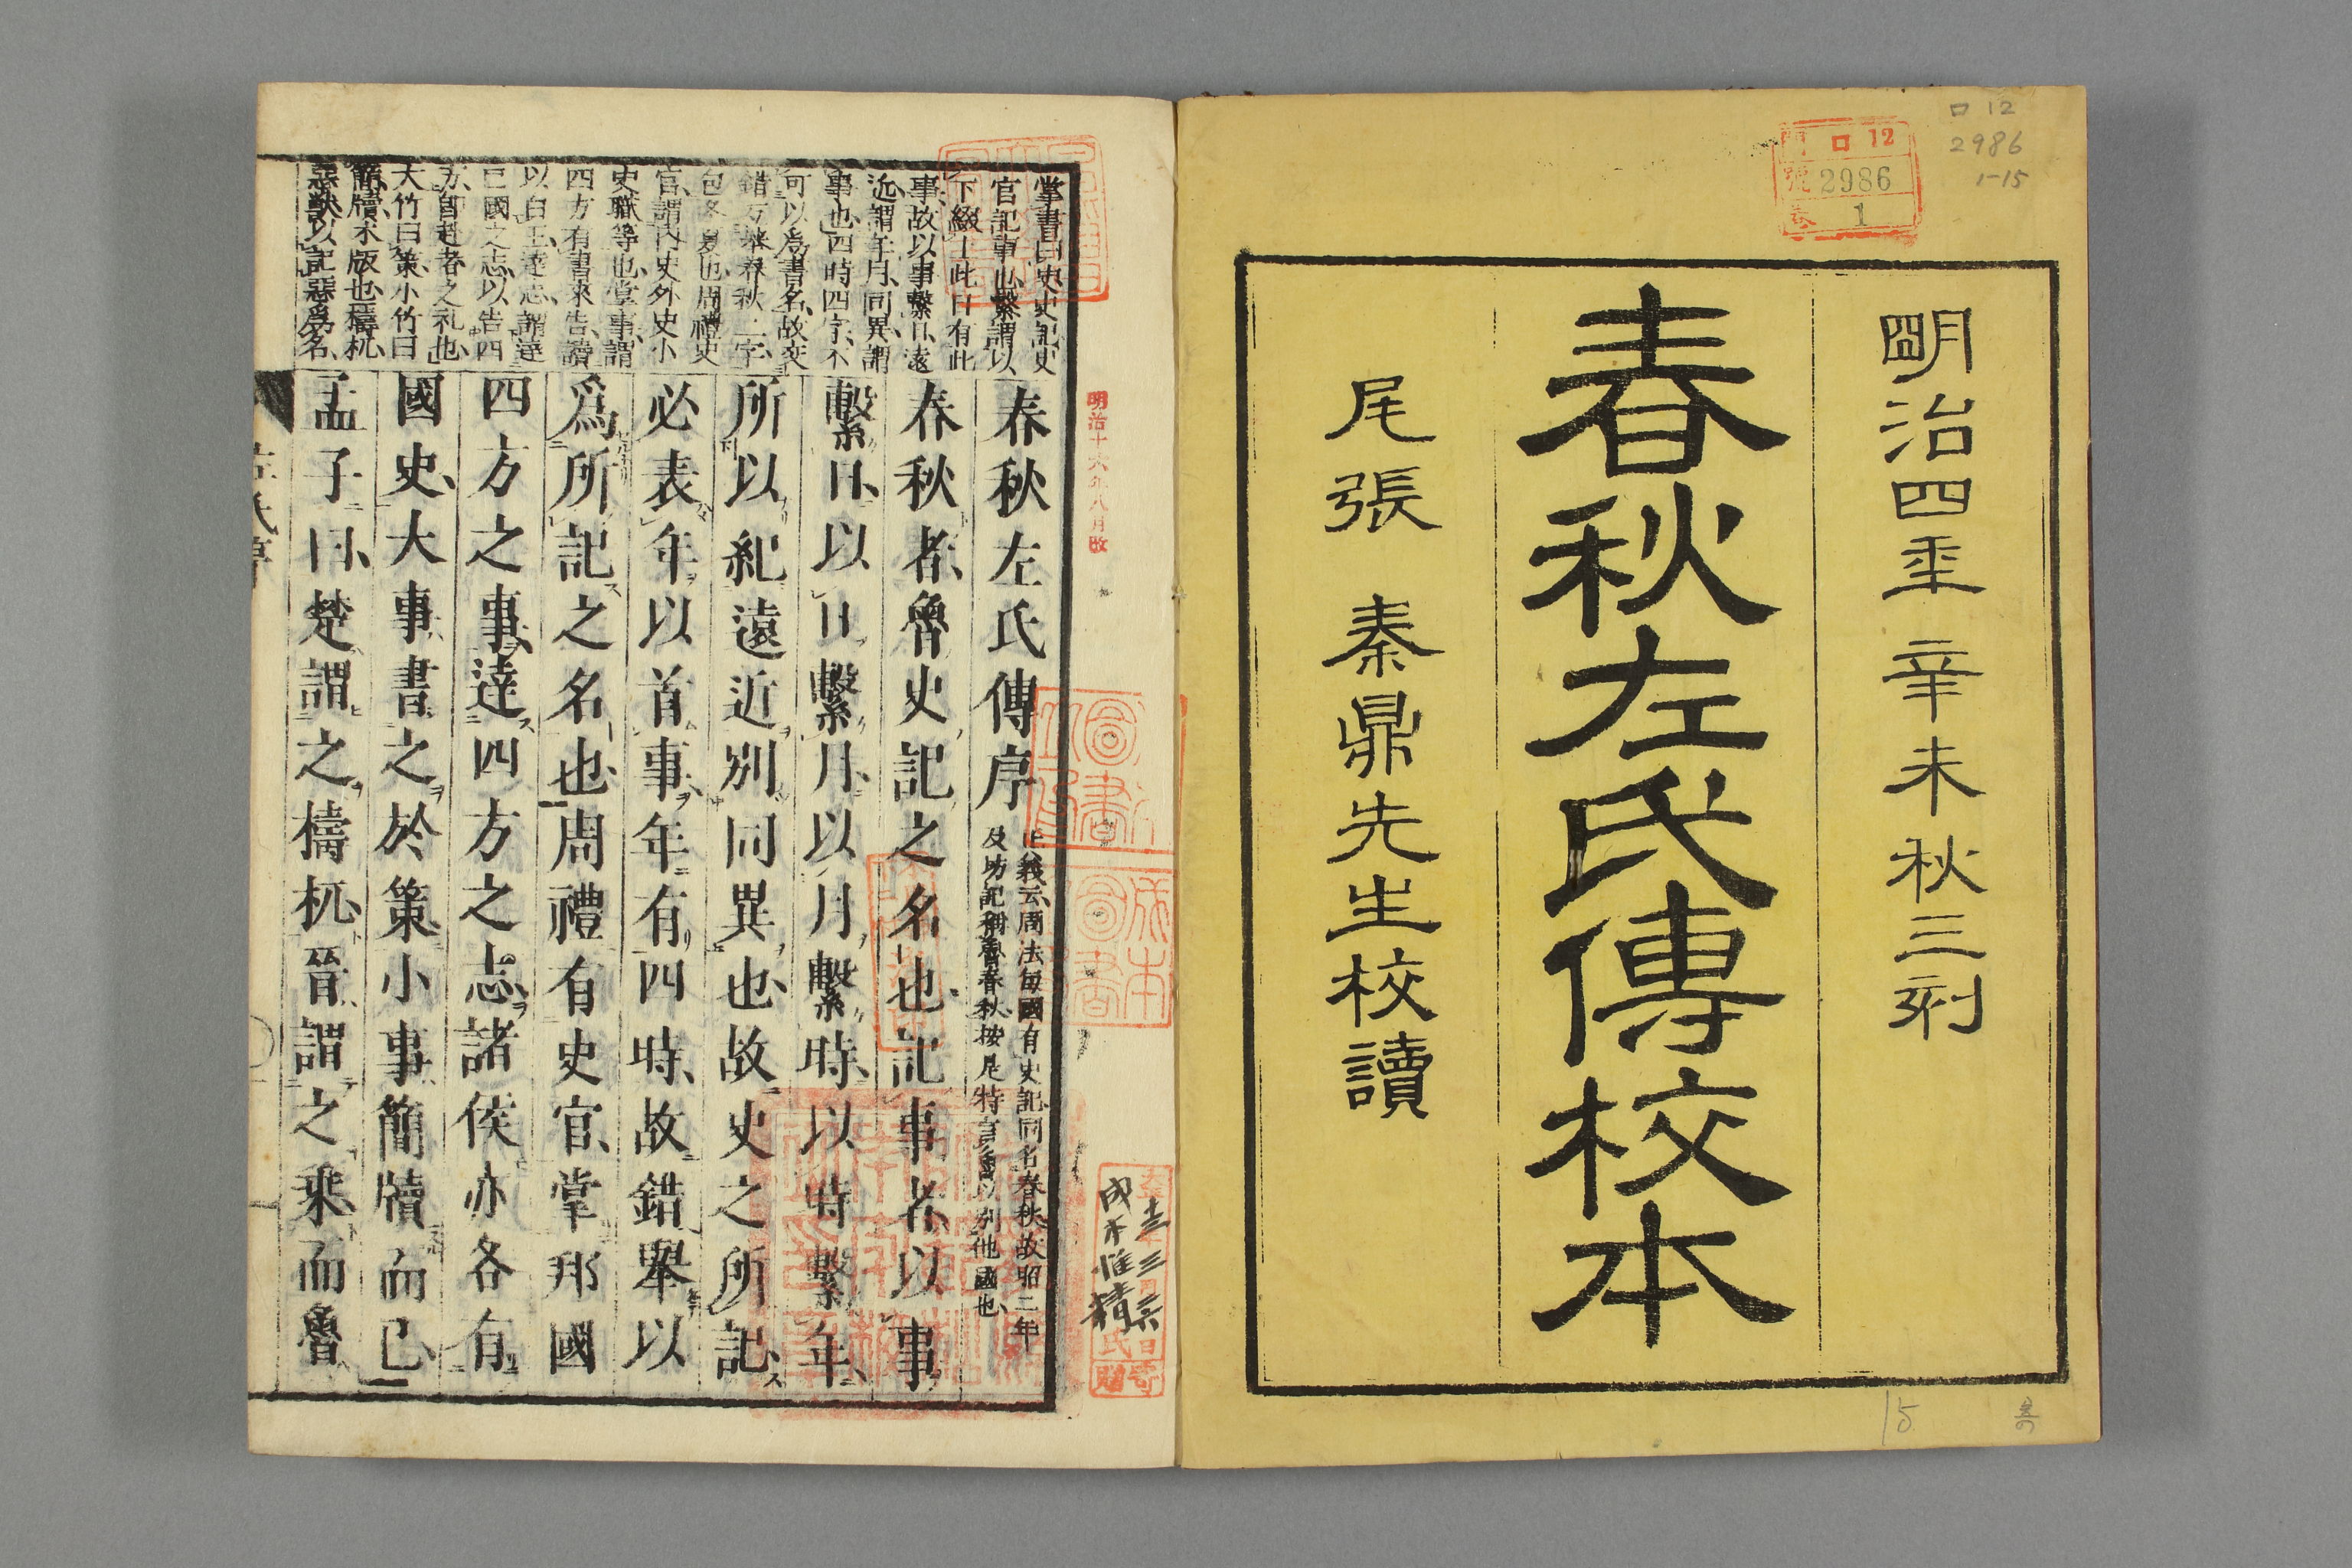 口 12
2986
1-15
門 口 12
號 2986
卷 1
明治四年辛未秋三刻
春秋左氏傳校本
尾張 秦鼎先生校讀
15
明治十六年八月改
掌書曰史史記史
官記事也繫謂以
下綴上此日有此
事故以事繫日遠
近謂年月同異謂
事也四時四字不
可以爲書名故交
錯互舉春秋二字
包冬夏也周禮史
官謂內史外史小
史職等也掌事謂
四方有書來告讀
以白王達志謂達
己國之志以告四
方皆赴者之礼也
大竹曰策小竹曰
簡牘木版也檮杌
惡獸以記惡爲名
春秋左氏傳序
正義云周法每國有史記同名春秋故昭二年
及坊記稱魯春秋按是特言魯以別他國也
春秋者魯史記之名也記事者以事
繫日以日繫月以月繫時以時繫年
所以紀遠近別同異也故史之所記
必表年以首事年有四時故錯舉以
爲所記之名也周禮有史官掌邦國
四方之事達四方之志諸侯亦各有
國史大事書之於策小事簡牘而已
孟子曰楚謂之檮杌晉謂之乘而魯